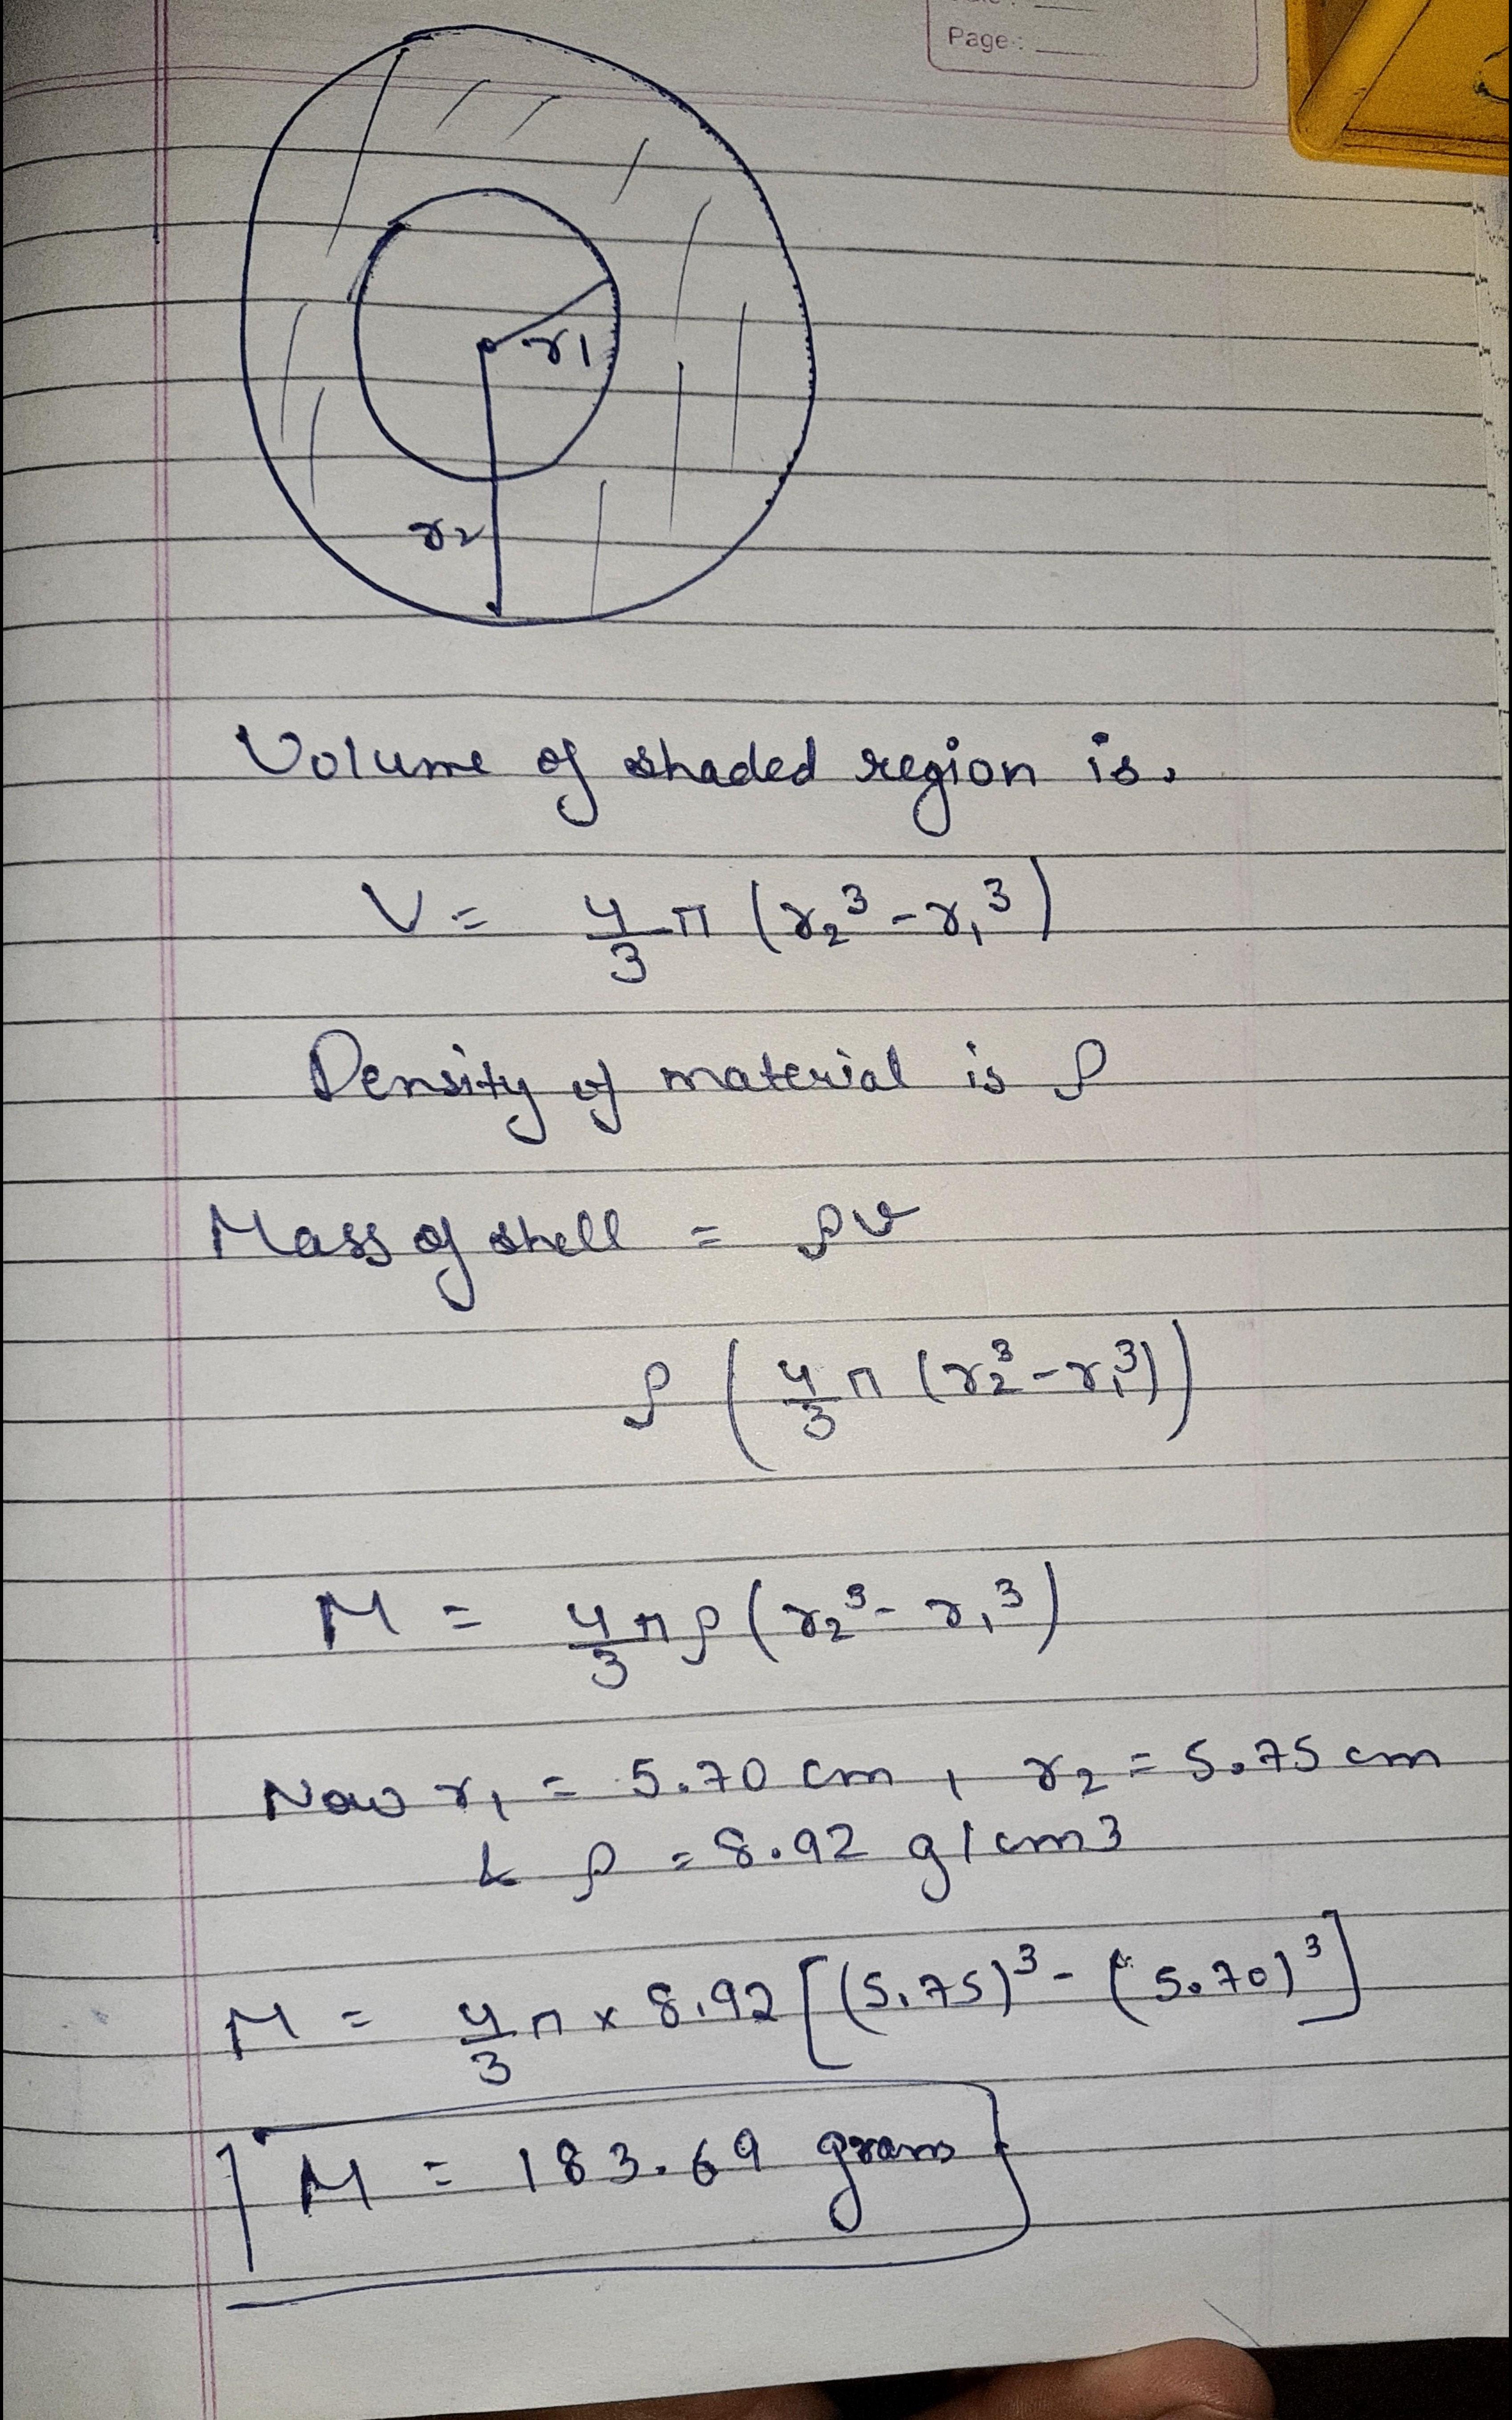 Page :
r1
r2
Volume of shaded region is.
V = 4/3 π (r₂³ - r₁³)
Density of material is ρ
Mass of shell = ρv
ρ (4/3 π (r₂³ - r₁³))
M = 4/3 πρ (r₂³ - r₁³)
Now r₁ = 5.70 cm, r₂ = 5.75 cm
& ρ = 8.92 g/cm3
M = 4/3 π × 8.92 [(5.75)³ - (5.70)³]
M = 183.69 grams